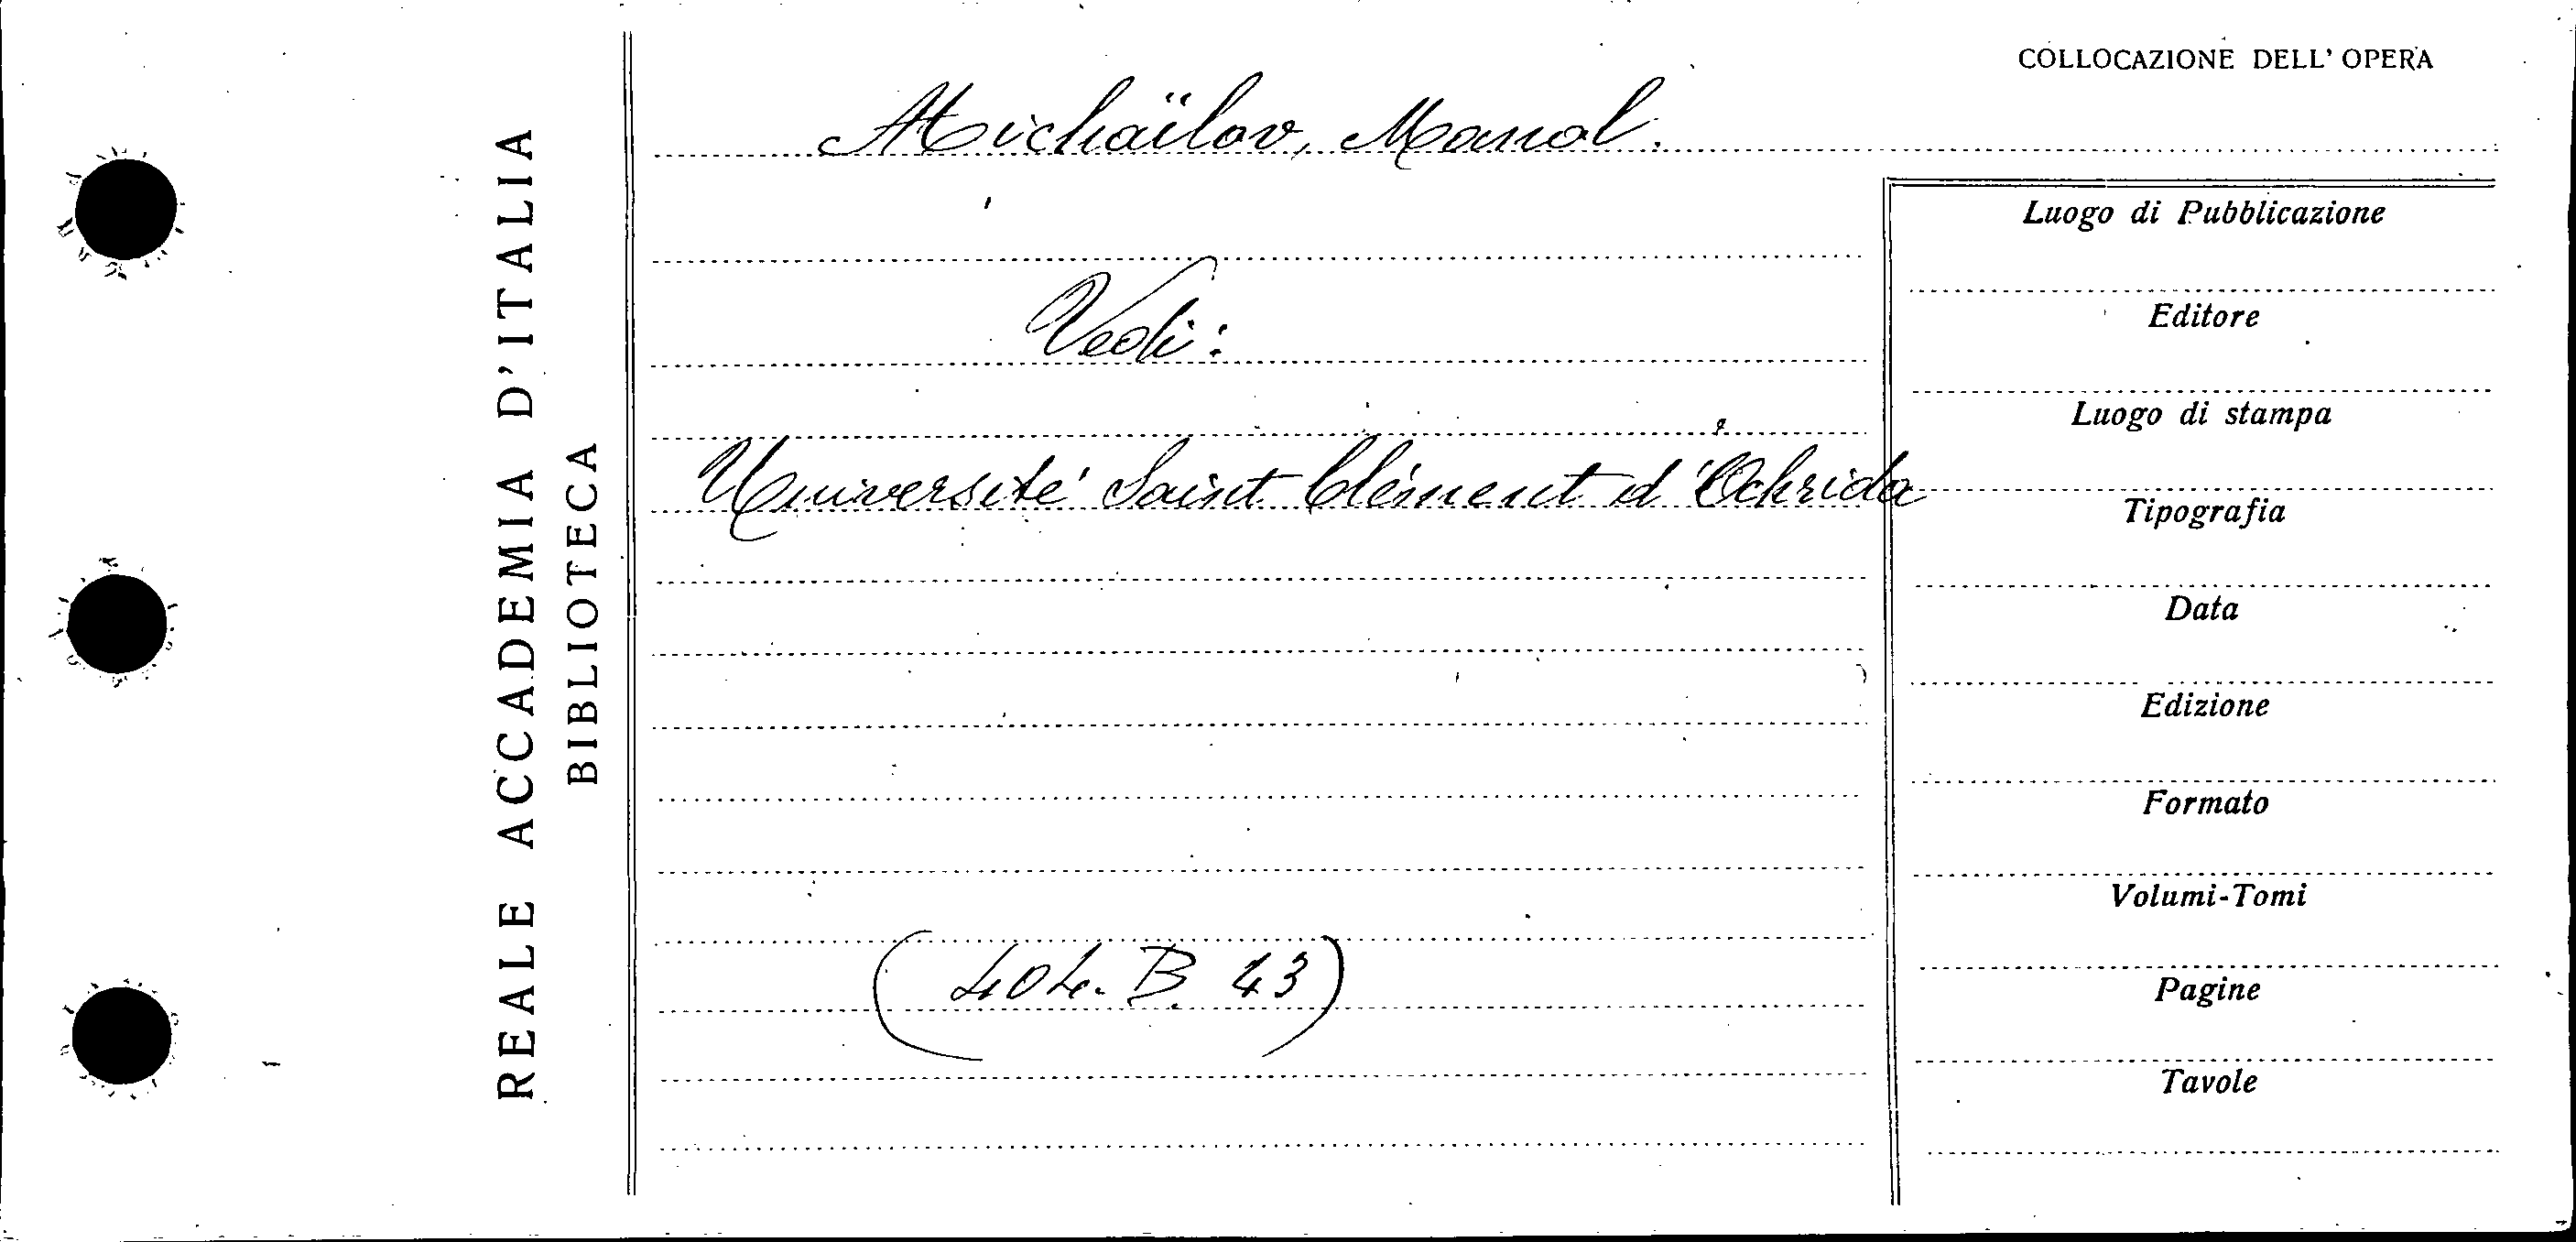 COLLOCAZIONE DELL' OPERA
Michaïlov, Manol.
Vedi:
Université Saint Clément d'Ochrida
(404. B. 43)
REALE ACCADEMIA D'ITALIA
BIBLIOTECA
Luogo di Pubblicazione
Editore
Luogo di stampa
Tipografia
Data
Edizione
Formato
Volumi-Tomi
Pagine
Tavole